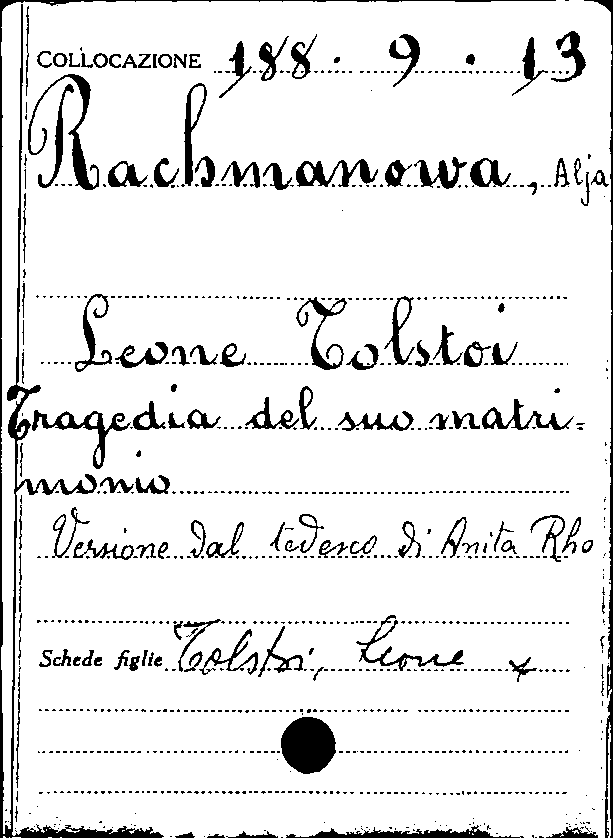 COLLOCAZIONE 188 . 9 . 13
Rachmanowa, Alja
Leone Tolstoi
Tragedia del suo matri=
monio
Versione dal tedesco di Anita Rho
Schede figlie Tolstoi, Leone x